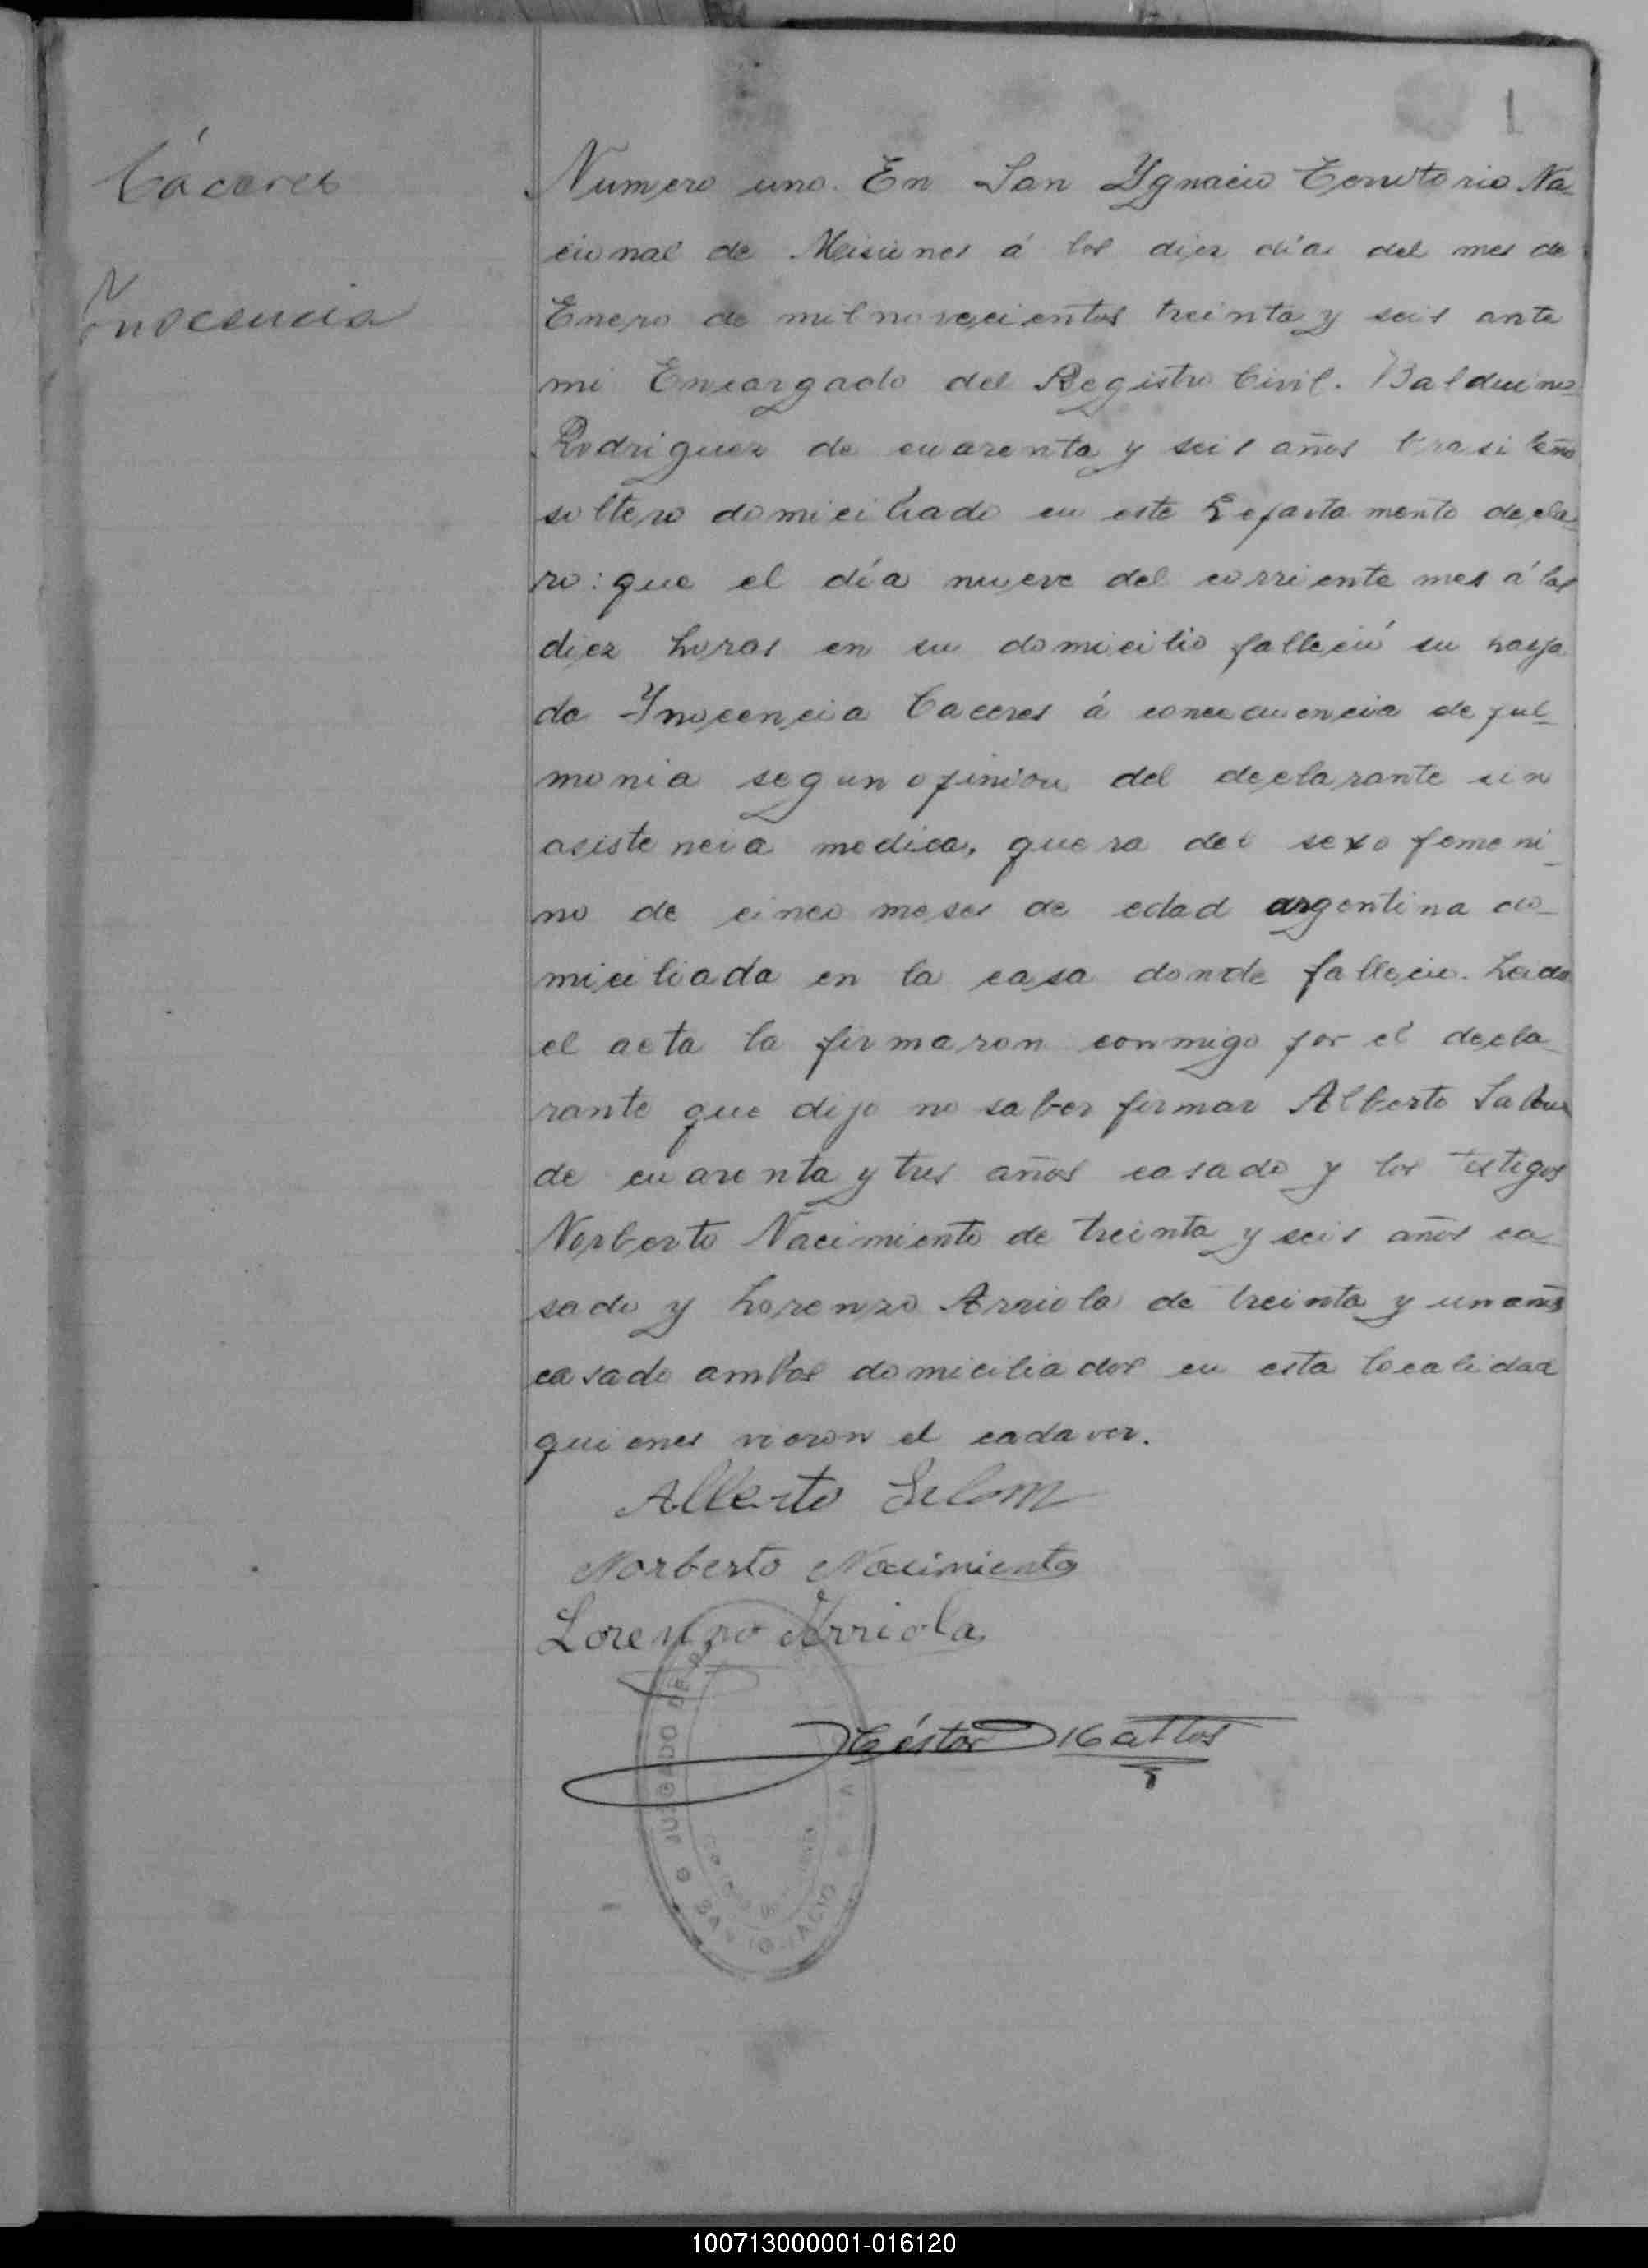 1
Cáceres
Ynocencia
Numero uno. En San Ygnacio Territorio Na-
cional de Misiones á los diez días del mes de
Enero de mil novecientos treinta y seis ante
mi Encargado del Registro Civil. Balduino
Rodriguez de cuarenta y seis años brasileño
soltero domiciliado en este Departamento decla-
ro: que el día nueve del corriente mes á las
diez horas en su domicilio falleció su
da Ynocencia Caceres á concecuencia de pul-
monia segun opinion del declarante sin
asistencia medica, quera del sexo femeni-
no de cinco meses de edad argentina do-
miciliada en la casa donde fallecio. Leida
el acta la firmaron conmigo por el decla-
rante que dijo no saber firmar Alberto
de cuarenta y tres años casado y los testigos
Norberto Nacimiento de treinta y seis años ca-
sado y Lorenzo Arriola de treinta y un años
casado ambos domiciliados en esta localidad
quienes vieron el cadaver.
Alberto
Norberto Nacimiento
Lorenzo Arriola
Héstor Mattos
JUZGADO DE
SAN IGNACIO
100713000001-016120